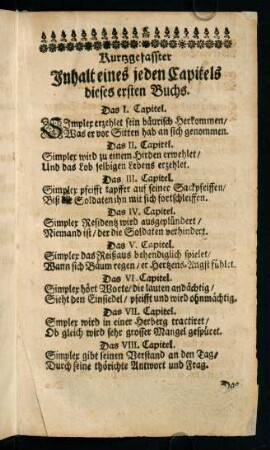 Kurtzgefasster
Inhalt eines jeden Capitels
dieses ersten Buchs.
Das I. Capitel.
SImplex erzehlet sein bäurisch Herkommen/
Was er vor Sitten hab an sich genommen.
Das II. Capitel.
Simplex wird zu einem Hirden erwehlet/
Und das Lob selbigen Lebens erzehlet.
Das III. Capitel.
Simplex pfeifft tapffer auf seiner Sackpfeiffen/
Biß die Soldaten ihn mit sich fortschleiffen.
Das IV. Capitel.
Simplex Residentz wird ausgeplündert/
Niemand ist/ der die Soldaten verhindert.
Das V. Capitel.
Simplex das Reißaus behendiglich spielet/
Wann sich Bäum regen/ er Hertzens-Angst fühlet.
Das VI. Capitel.
Simplex hört Worte/ die lauten andächtig/
Sieht den Einsiedel/ pfeifft und wird ohnmächtig.
Das VII. Capitel.
Simplex wird in einer Herberg tractiret/
Ob gleich wird sehr grosser Mangel gespüret.
Das VIII. Capitel.
Simplex gibt seinen Verstand an den Tag/
Durch seine thörichte Antwort und Frag.
Das